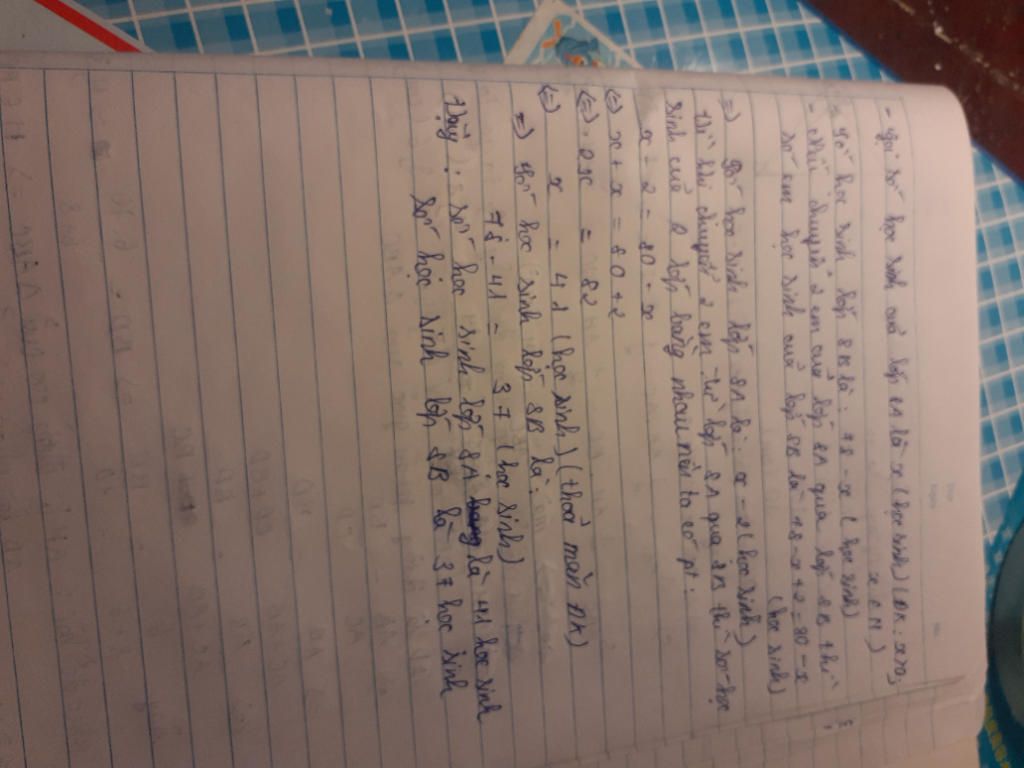 - Gọi số học sinh của lớp 8A là x (học sinh) (ĐK: x>0,
x ∈ N)
- Số học sinh lớp 8B là: 78 - x (học sinh)
- Nếu chuyển 2 em của lớp 8A qua lớp 8B thì
số em học sinh của lớp 8B là 78-x+2 = 80 - x
(học sinh)
=) Số học sinh lớp 8A là: x - 2 (học sinh)
Vì khi chuyển 2 em từ lớp 8A qua 8B thì số học
sinh của 2 lớp bằng nhau nên ta có pt:
x - 2 = 80 - x
(=) x + x = 80 + 2
(=) 2x = 82
(=) x = 41 (học sinh) (thoả mãn ĐK)
=) Số học sinh lớp 8B là:
78 - 41 = 37 (học sinh)
Vậy: số học sinh lớp 8A là 41 học sinh
số học sinh lớp 8B là 37 học sinh